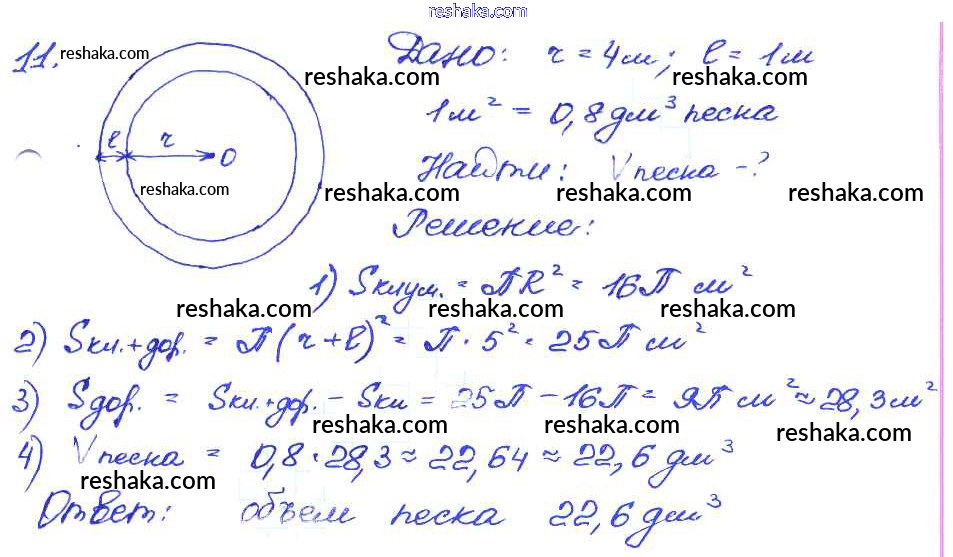 reshaka.com
11. reshaka.com
Дано: r = 4м; l = 1м
reshaka.com reshaka.com
1м² = 0,8 дм³ песка
l r O
Найти: V песка - ?
reshaka.com reshaka.com reshaka.com reshaka.com
Решение:
1) Sклум. = πR² = 16π м²
reshaka.com reshaka.com reshaka.com
2) Sкл.+дор. = π(r+l)² = π · 5² = 25π м²
3) Sдор. = Sкл.+дор. - Sкл = 25π - 16π = 9π м² ≈ 28,3м²
reshaka.com reshaka.com
4) V песка = 0,8 · 28,3 ≈ 22,64 ≈ 22,6 дм³
reshaka.com reshaka.com reshaka.com
Ответ: объем песка 22,6 дм³